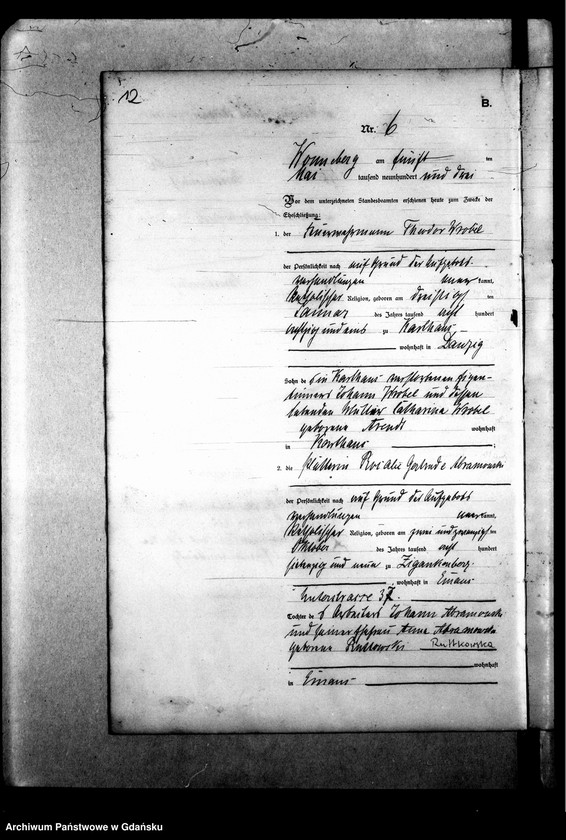 12
B.
Nr. 6
Wonneberg am fünften
Mai tausend neunhundert und drei
Vor dem unterzeichneten Standesbeamten erschienen heute zum Zwecke der
Eheschließung:
1. der Feuerwehrmann Theodor Wrobel
der Persönlichkeit nach auf Grund der Aufgebots-
verhandlungen aner kannt,
katholischer Religion, geboren am dreißigsten
Januar des Jahres tausend acht hundert
achtzig und eins zu Karthaus
wohnhaft in Danzig
Sohn des in Karthaus verstorbenen Eigen-
tümers Johann Wrobel und dessen
lebenden Mutter Catharina Wrobel
geborene Arendt wohnhaft
in Karthaus ;
2. die Plätterin Rosalie Gertrude Abramowski
der Persönlichkeit nach auf Grund des Aufgebots
verhandlungen aner kannt,
katholischer Religion, geboren am zwei und zwanzigsten
Oktober des Jahres tausend acht hundert
siebenzig und neun zu Zigankenberg
wohnhaft in Emaus
Unterstrasse 37.
Tochter des Arbeiters Johann Abramowski
und seiner Ehefrau Anna Abramowski
geborene Rutkowski Ruttkowska
wohnhaft
in Emaus
Archiwum Państwowe w Gdańsku